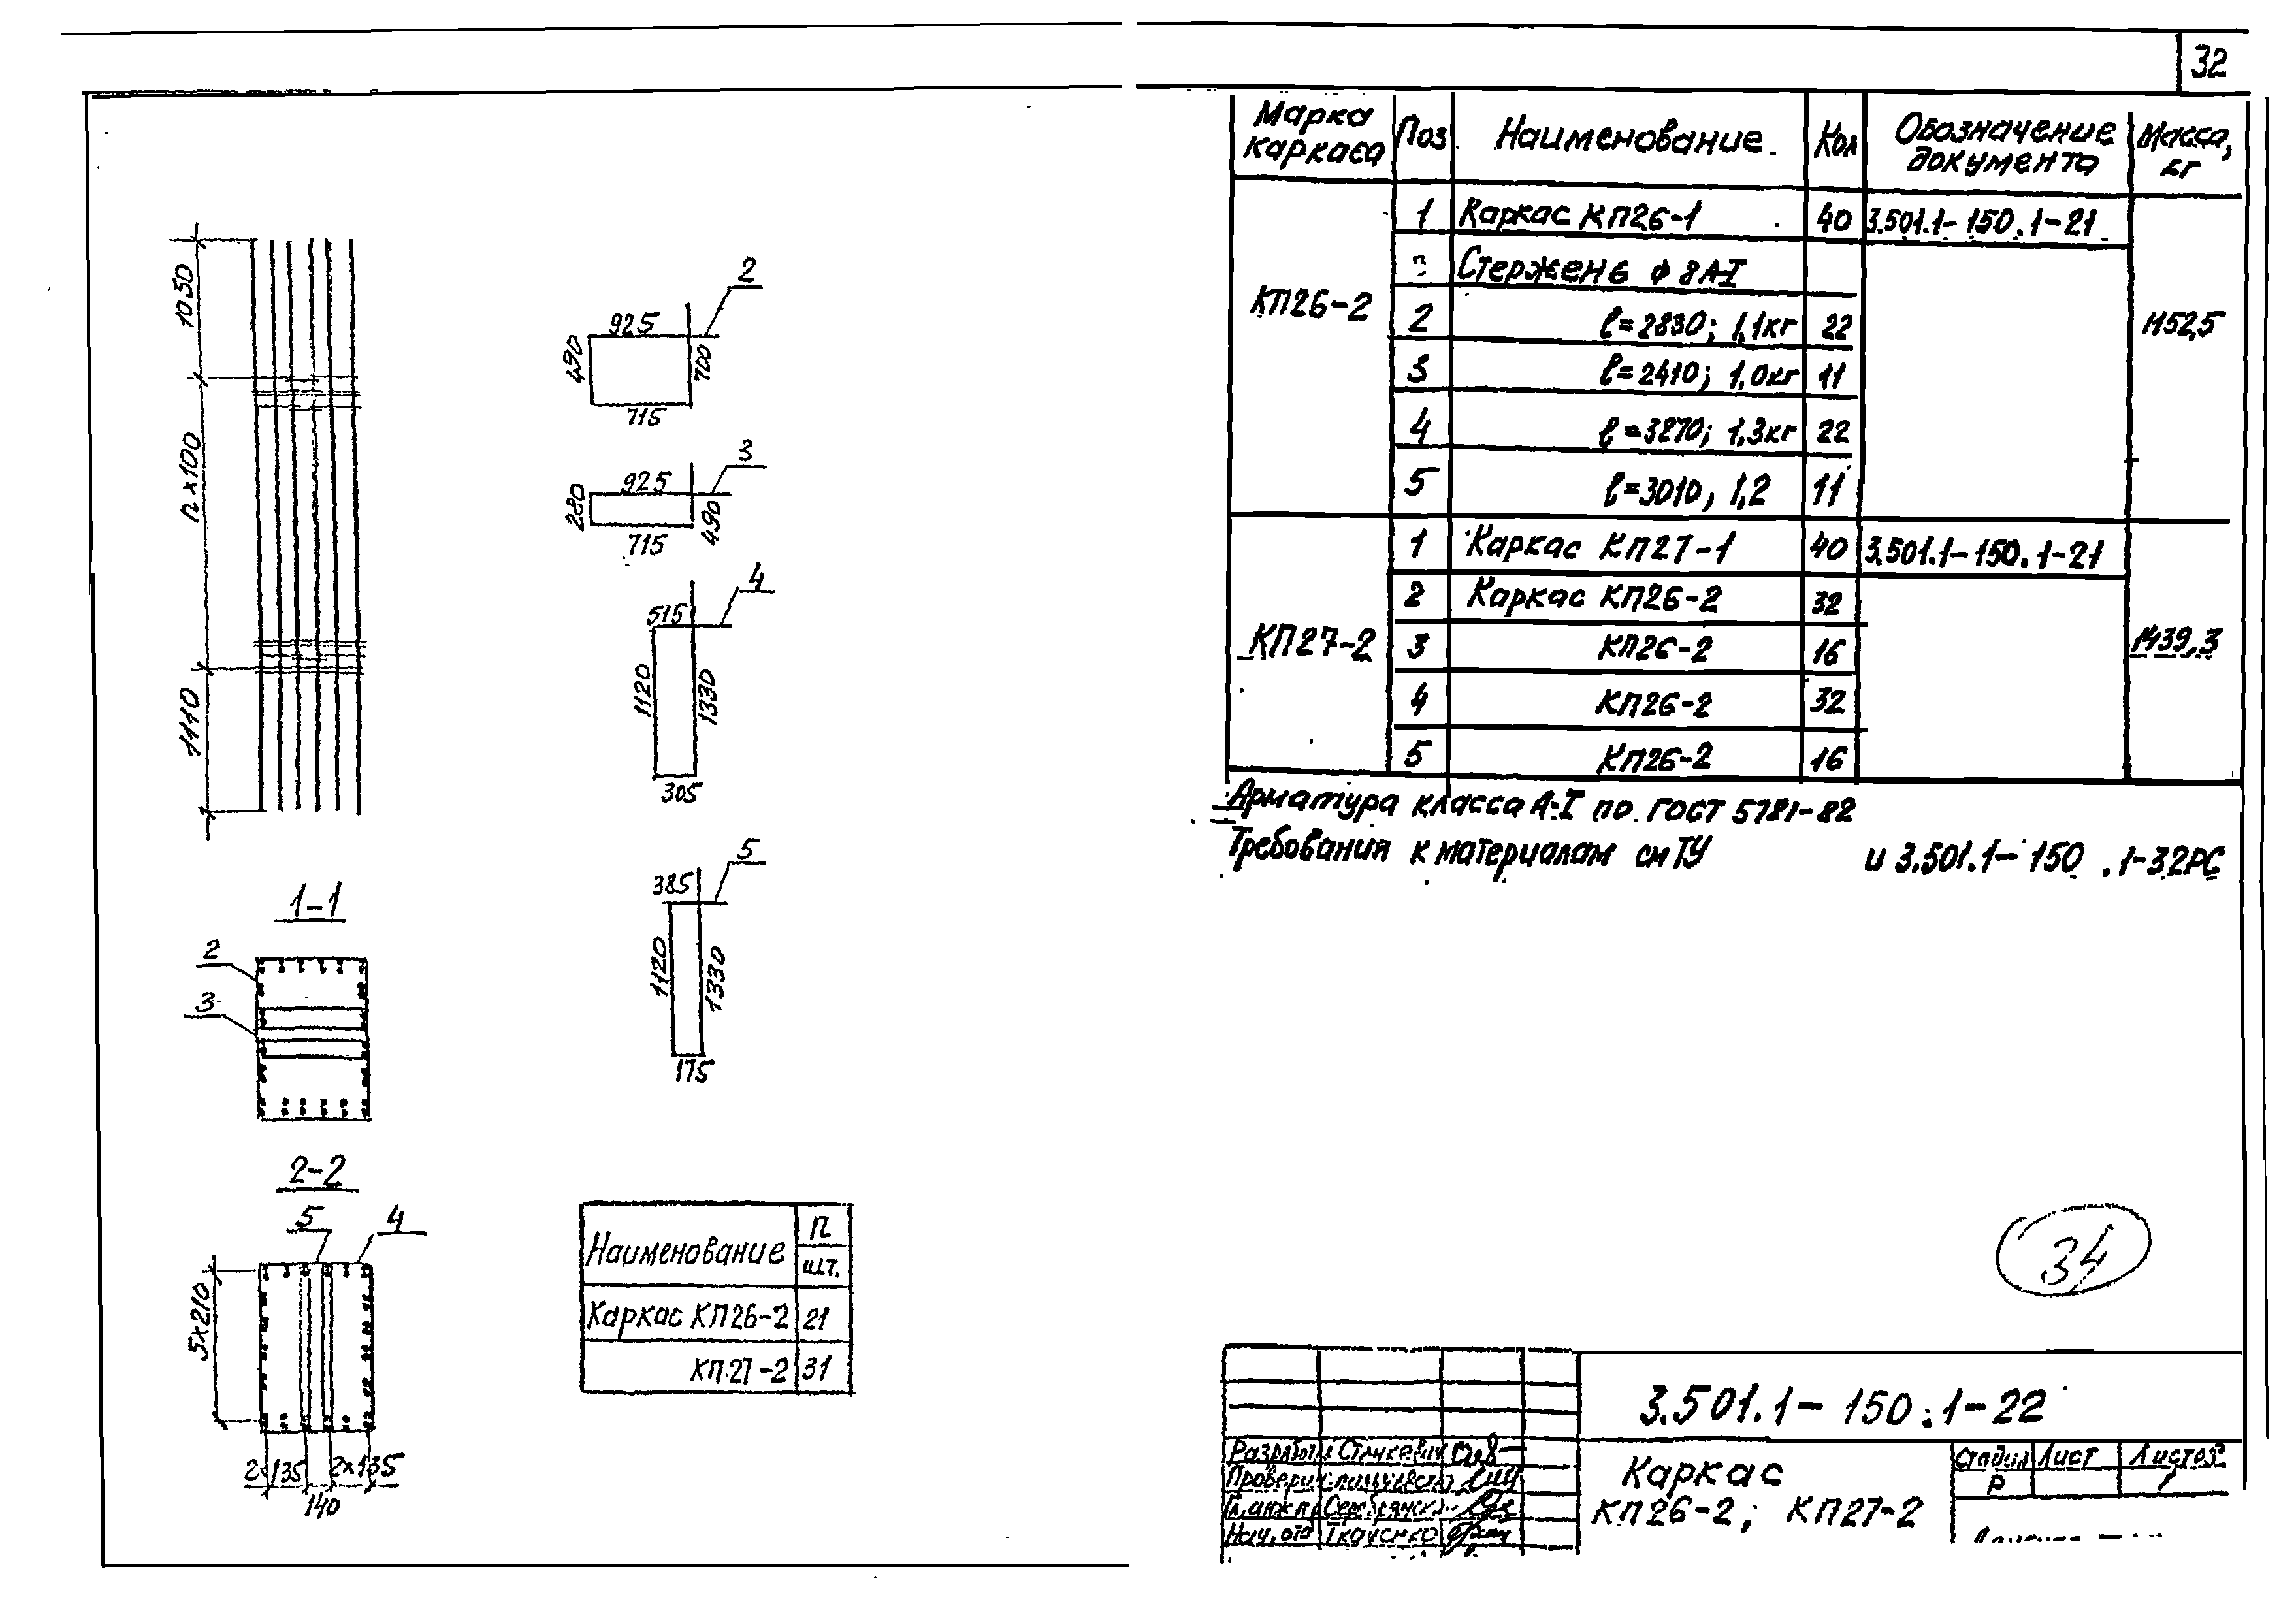 32
1050
n×100
1110
2
925
490
700
715
3
925
280
490
715
4
515
1120
1330
305
5
385
1120
1330
175
1-1
2
3
2-2
5
4
5×210
2×135
2×135
140
Наименование n шт.
Каркас КП26-2 21
КП27-2 31
Марка каркаса Поз Наименование Кол Обозначение документа Масса, кг
КП26-2 1152,5
1 Каркас КП26-1 40 3.501.1-150.1-21
Стержень ф 8А-I
2 ℓ=2830; 1,1кг 22
3 ℓ=2410; 1,0кг 11
4 ℓ=3270; 1,3кг 22
5 ℓ=3010, 1,2 11
КП27-2 1439,3
1 Каркас КП27-1 40 3.501.1-150.1-21
2 Каркас КП26-2 32
3 КП26-2 16
4 КП26-2 32
5 КП26-2 16
Арматура класса А-I по ГОСТ 5781-82
Требования к материалам см ТУ и 3.501.1-150.1-32РС
34
3.501.1-150.1-22
Разработал Станкевич
Проверил
Гл. инж пр
Нач. отд Ткаченко
Каркас
КП26-2; КП27-2
Стадия Лист Листов
Р 1